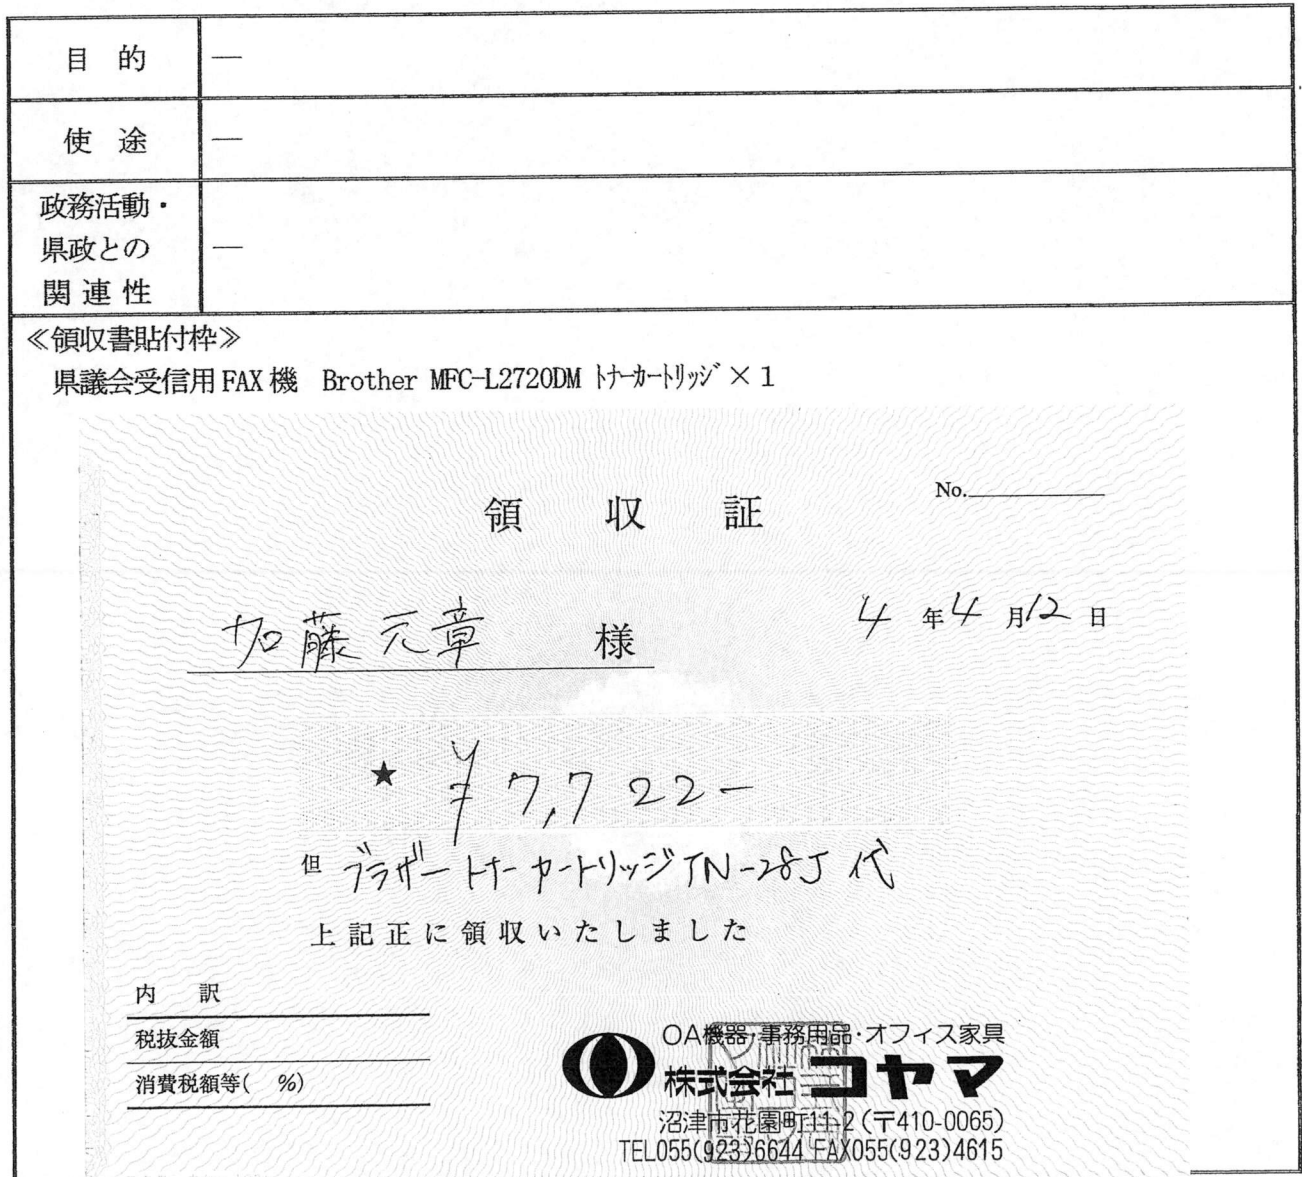 目 的 —
使 途 —
政務活動・
県政との —
関 連 性
≪領収書貼付枠≫
県議会受信用 FAX 機 Brother MFC-L2720DM ﾄﾅｰｶｰﾄﾘｯｼﾞ×1
No.
領 収 証
4 年 4 月 12 日
加藤元章 様
★ ¥7,722-
但 ブラザートナーカートリッジTN-28J代
上記正に領収いたしました
内 訳
税抜金額
消費税額等( %)
OA機器・事務用品・オフィス家具
株式会社 コヤマ
沼津市花園町11-2(〒410-0065)
TEL055(923)6644 FAX055(923)4615